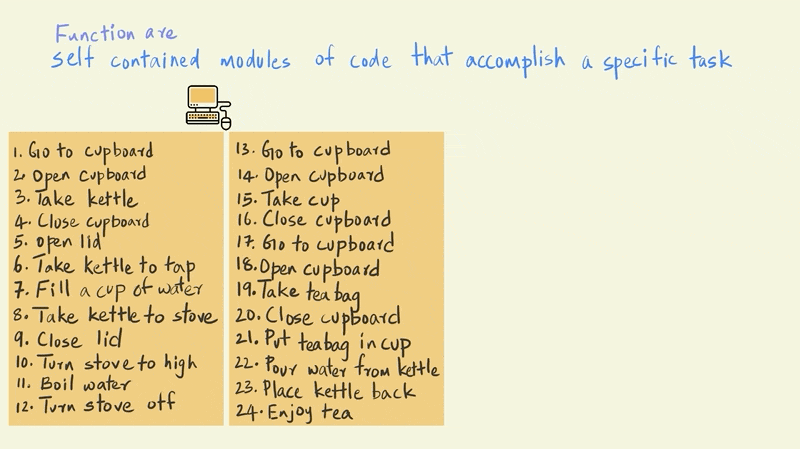 Function are
self contained modules of code that accomplish a specific task
1. Go to cupboard
2. Open cupboard
3. Take kettle
4. Close cupboard
5. open lid
6. Take kettle to tap
7. Fill a cup of water
8. Take kettle to stove
9. Close lid
10. Turn stove to high
11. Boil water
12. Turn stove off
13. Go to cupboard
14. Open cupboard
15. Take cup
16. Close cupboard
17. Go to cupboard
18. Open cupboard
19. Take tea bag
20. Close cupboard
21. Put teabag in cup
22. Pour water from kettle
23. Place kettle back
24. Enjoy tea